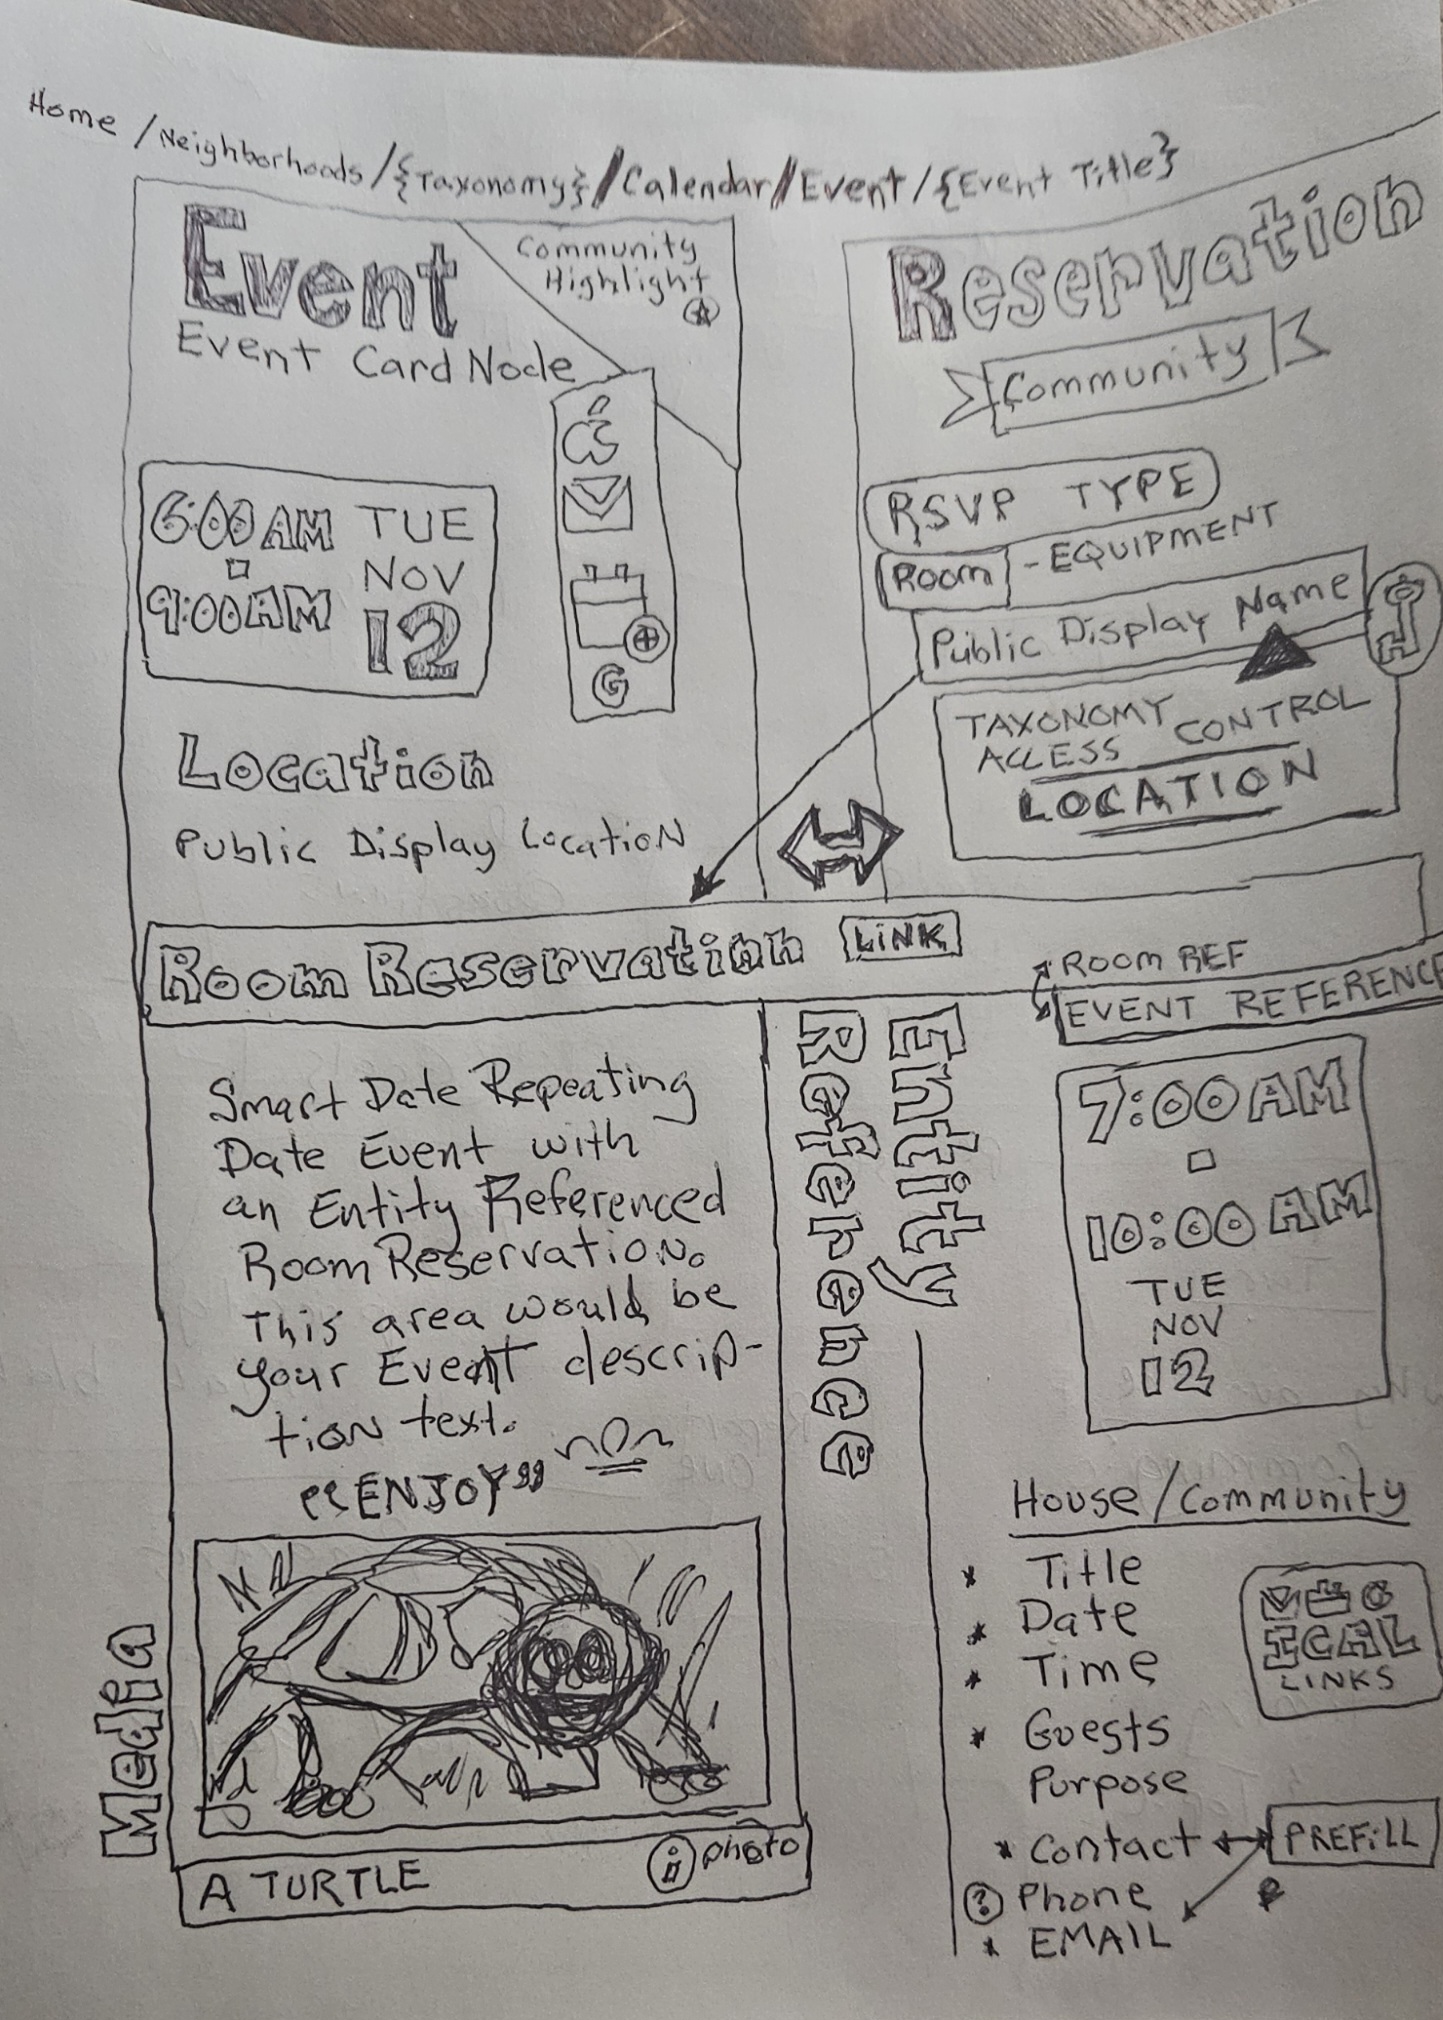 Home / Neighborhoods / {Taxonomy} / Calendar / Event / {Event Title}
Event
Community
Highlight
Event Card Node
6:00 AM
9:00 AM
TUE
NOV
12
G
Location
Public Display Location
Room Reservation LINK
Smart Date Repeating
Date Event with
an Entity Referenced
Room Reservation.
This area would be
your Event descrip-
tion text.
"ENJOY"
Media
A TURTLE
i photo
Entity
Reference
Reservation
Community
RSVP TYPE
ROOM - EQUIPMENT
Public Display Name
TAXONOMY
ACCESS CONTROL
LOCATION
ROOM REF
EVENT REFERENCE
7:00 AM
10:00 AM
TUE
NOV
12
House/Community
* Title
* Date
* Time
* Guests
Purpose
* Contact
? Phone
* EMAIL
G
ICAL
LINKS
PREFILL